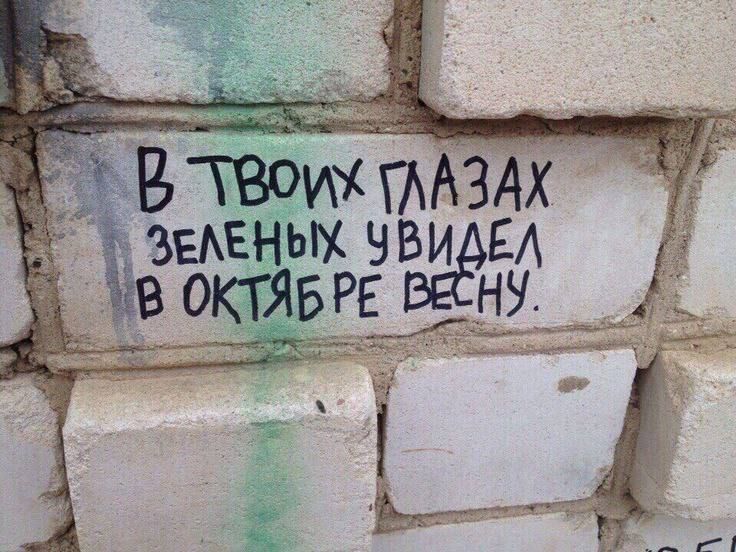 В ТВОИХ ГЛАЗАХ
ЗЕЛЕНЫХ УВИДЕЛ
В ОКТЯБРЕ ВЕСНУ.